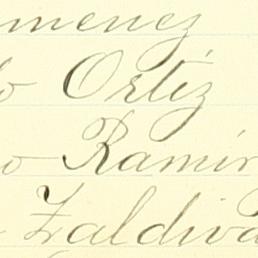 imenez
o Ortiz
o Ramír
Zaldiva